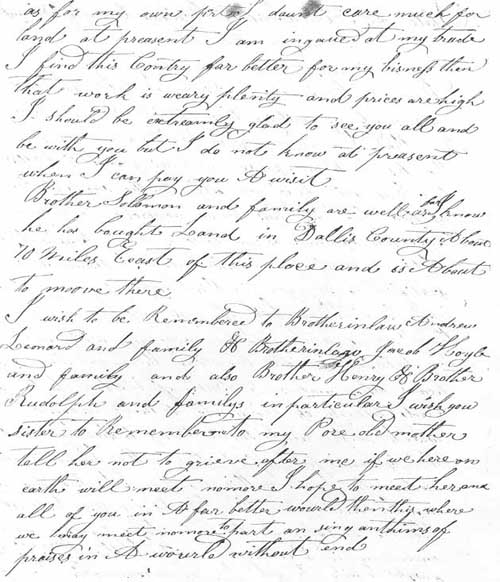 as for my own part I daunt care much for
land at preasent I am ingaued at my trade
I find this Contry far better for my bisness then
that work is weary plenty and prices are high
I should be extreamly glad to see you all and
be with you but I do not know at preasent
when I can pay you A visit
Brother Solamon and family are well as far I know
he has bought Land in Dallis County About
70 Miles Eeast of this place and is About
to moove there
I wish to be Remembered to Brotherinlaw Andrew
Leonard and family & Brotherinlaw Jacob Hoyle
and family and also Brother Henry & Brother
Rudolph and familys in particular I wish you
sister to Remember to my Pore old mother
tell her not to grieve after me if we here on
earth will meet nomore I hope to meet her and
all of you in A far better wourld then this where
we way meet nomore to part an sing anthims of
praises in A wourld without end